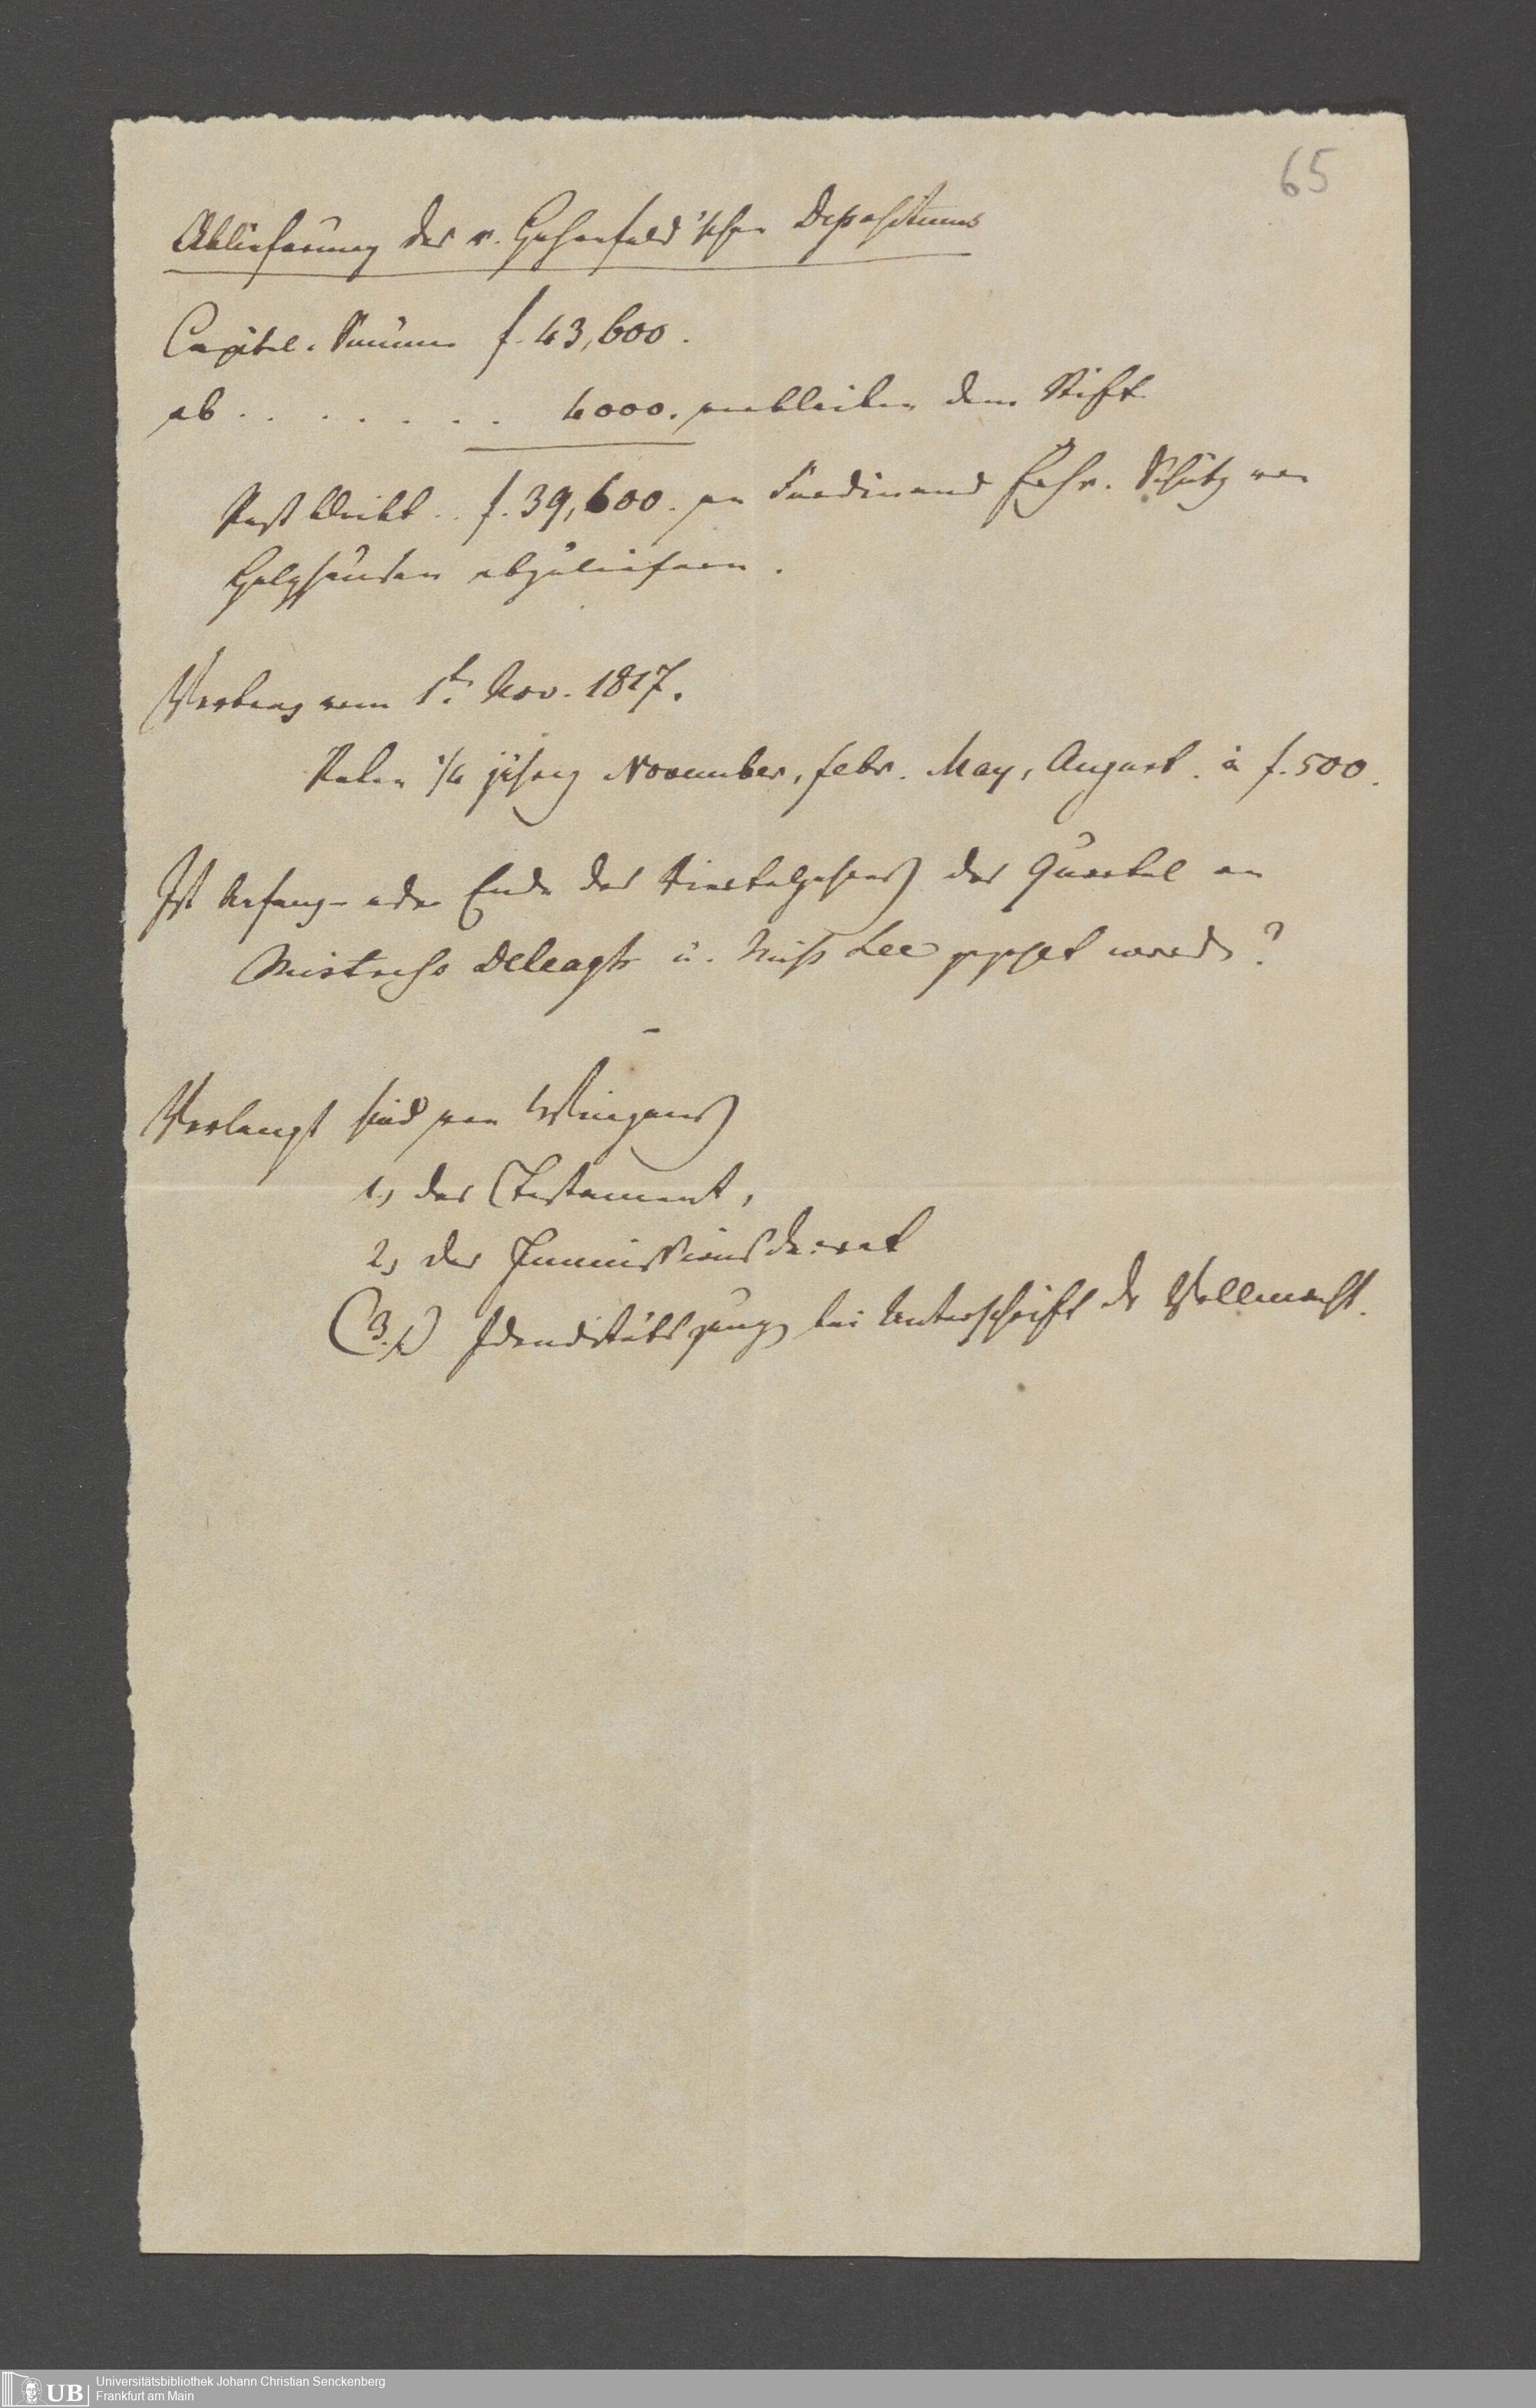 65
Ablieferung des v. Hohenfeld'schen Depositums
Capital-Summe f. 43,600.
ab . . . . . . . 4000. verbleiben dem Stift
Rest bleibt . . f. 39,600. an Ferdinand Frhr. Schütz von
Holzhausen abzuliefern.
Vertrag vom 1t. Nov. 1817.
Raten 1/4 jährig November, Febr. May, August. à f. 500.
Ist Anfang- oder Ende des Vierteljahres das Quartal an
Mistress u. Miss Lee gezahlt worden?
Verlangt sind von
1., das Testament,
2, das Immissionsdecret
(3.) Idendität bei Unterschrift der Vollmacht.
Universitätsbibliothek Johann Christian Senckenberg
Frankfurt am Main
UB